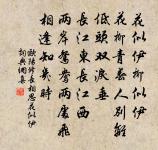 花似伊柳似伊
花柳青春人別離
低頭雙淚垂
長江東長江西
兩岸鴛鴦兩處飛
相逢知幾時
歐陽修長相思花似伊
詞典網集